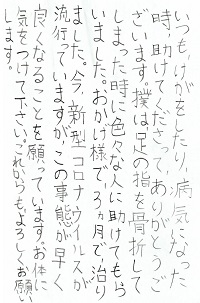 いつも、けがをしたり、病気になった
時、助けてくださって、ありがとうご
ざいます。僕は足の指を骨折して
しまった時に色々な人に助けてもら
いました。おかげ様で、3ヵ月で、治り
ました。今、新型コロナウイルスが
流行っていますが、この事態が早く
良くなることを願っています。お体に
気をつけて下さい。これからもよろしくお願い
します。